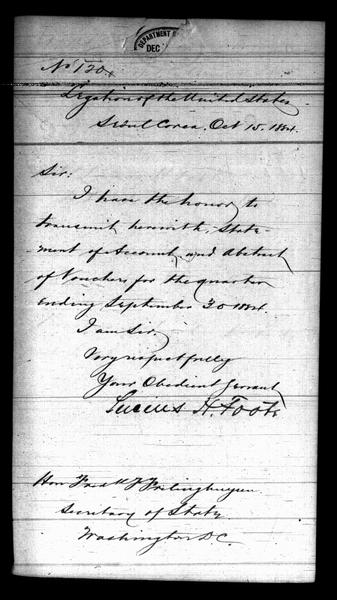 DEPARTMENT
DEC
No 120.
Legation of the United States
Seoul Corea. Oct 15. 1884.
Sir:
I have the honor to
transmit herewith, State-
ment of Account, and Abstract
of Vouchers for the quarter
ending September 30 1884.
I am Sir,
Very respectfully
Your Obedient Servant
Lucius H. Foote
Hon Fredk T. Frelinghuysen
Secretary of State
Washington D.C.